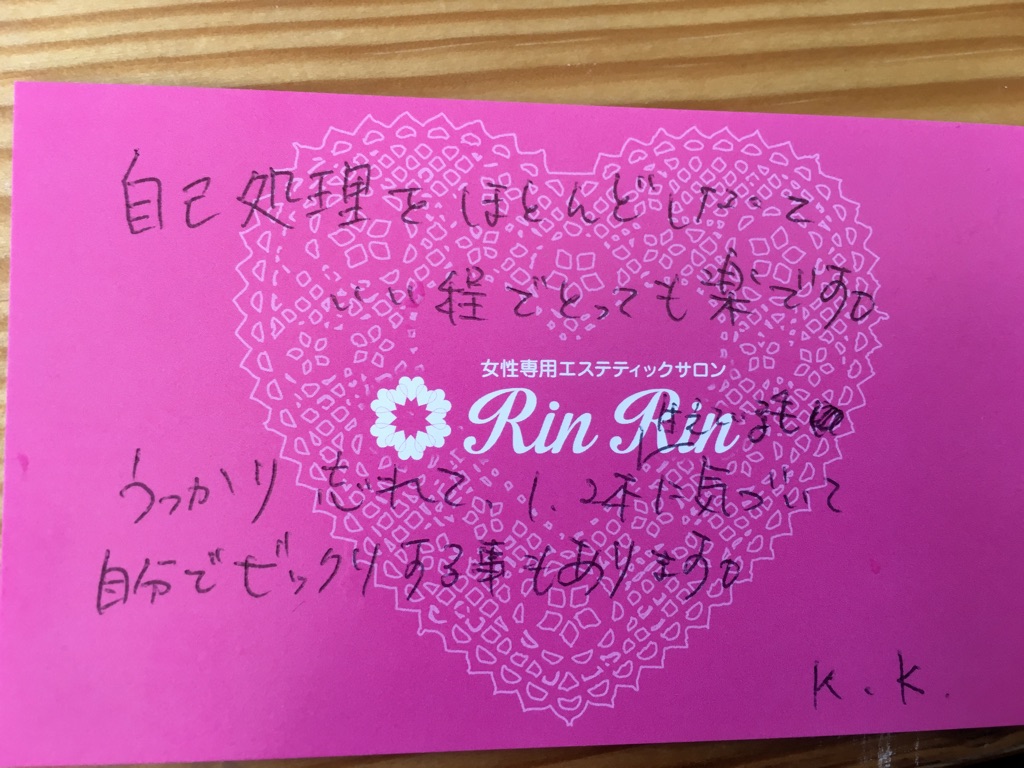 自己処理をほとんどしなくて
いい程でとっても楽です。
女性専用エステティックサロン
Rin Rin
うっかり忘れて、1、2本に気づいて
自分でビックリする事もあります。
K.K.